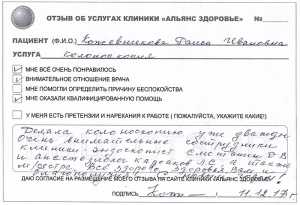 ОТЗЫВ ОБ УСЛУГАХ КЛИНИКИ «АЛЬЯНС ЗДОРОВЬЕ» №
ПАЦИЕНТ (Ф.И.О.) Кожевникова Раиса Ивановна
УСЛУГА колоноскопия
МНЕ ВСЁ ОЧЕНЬ ПОНРАВИЛОСЬ
ВНИМАТЕЛЬНОЕ ОТНОШЕНИЕ ВРАЧА
МНЕ ПОМОГЛИ ОПРЕДЕЛИТЬ ПРИЧИНУ БЕСПОКОЙСТВА
МНЕ ОКАЗАЛИ КВАЛИФИЦИРОВАННУЮ ПОМОЩЬ
У МЕНЯ ЕСТЬ ПРЕТЕНЗИИ И НАРЕКАНИЯ К РАБОТЕ ( ПОЖАЛУЙСТА, УКАЖИТЕ КАКИЕ!)
Делала колоноскопию уже дважды
Очень внимательные сотрудники
клиники: эндоскопист
и анестезиолог а также
м/сестра. Всё здорово. Здоровья Вам и
ДАЮ СОГЛАСИЕ НА РАЗМЕЩЕНИЕ МОЕГО ОТЗЫВА НА САЙТЕ КЛИНИКИ «АЛЬЯНС ЗДОРОВЬЕ»
ПОДПИСЬ 11.12.17г.